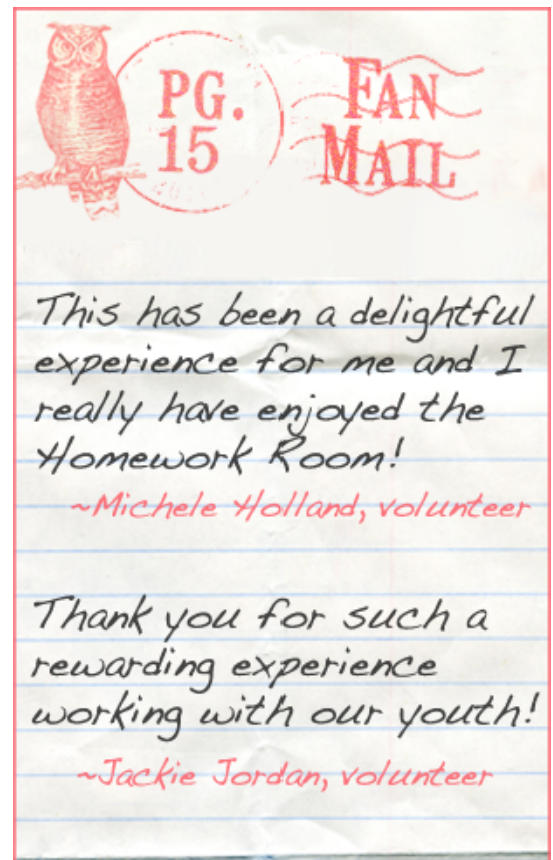 PG.
15
FAN
MAIL
This has been a delightful
experience for me and I
really have enjoyed the
Homework Room!
~Michele Holland, volunteer
Thank you for such a
rewarding experience
working with our youth!
~Jackie Jordan, volunteer